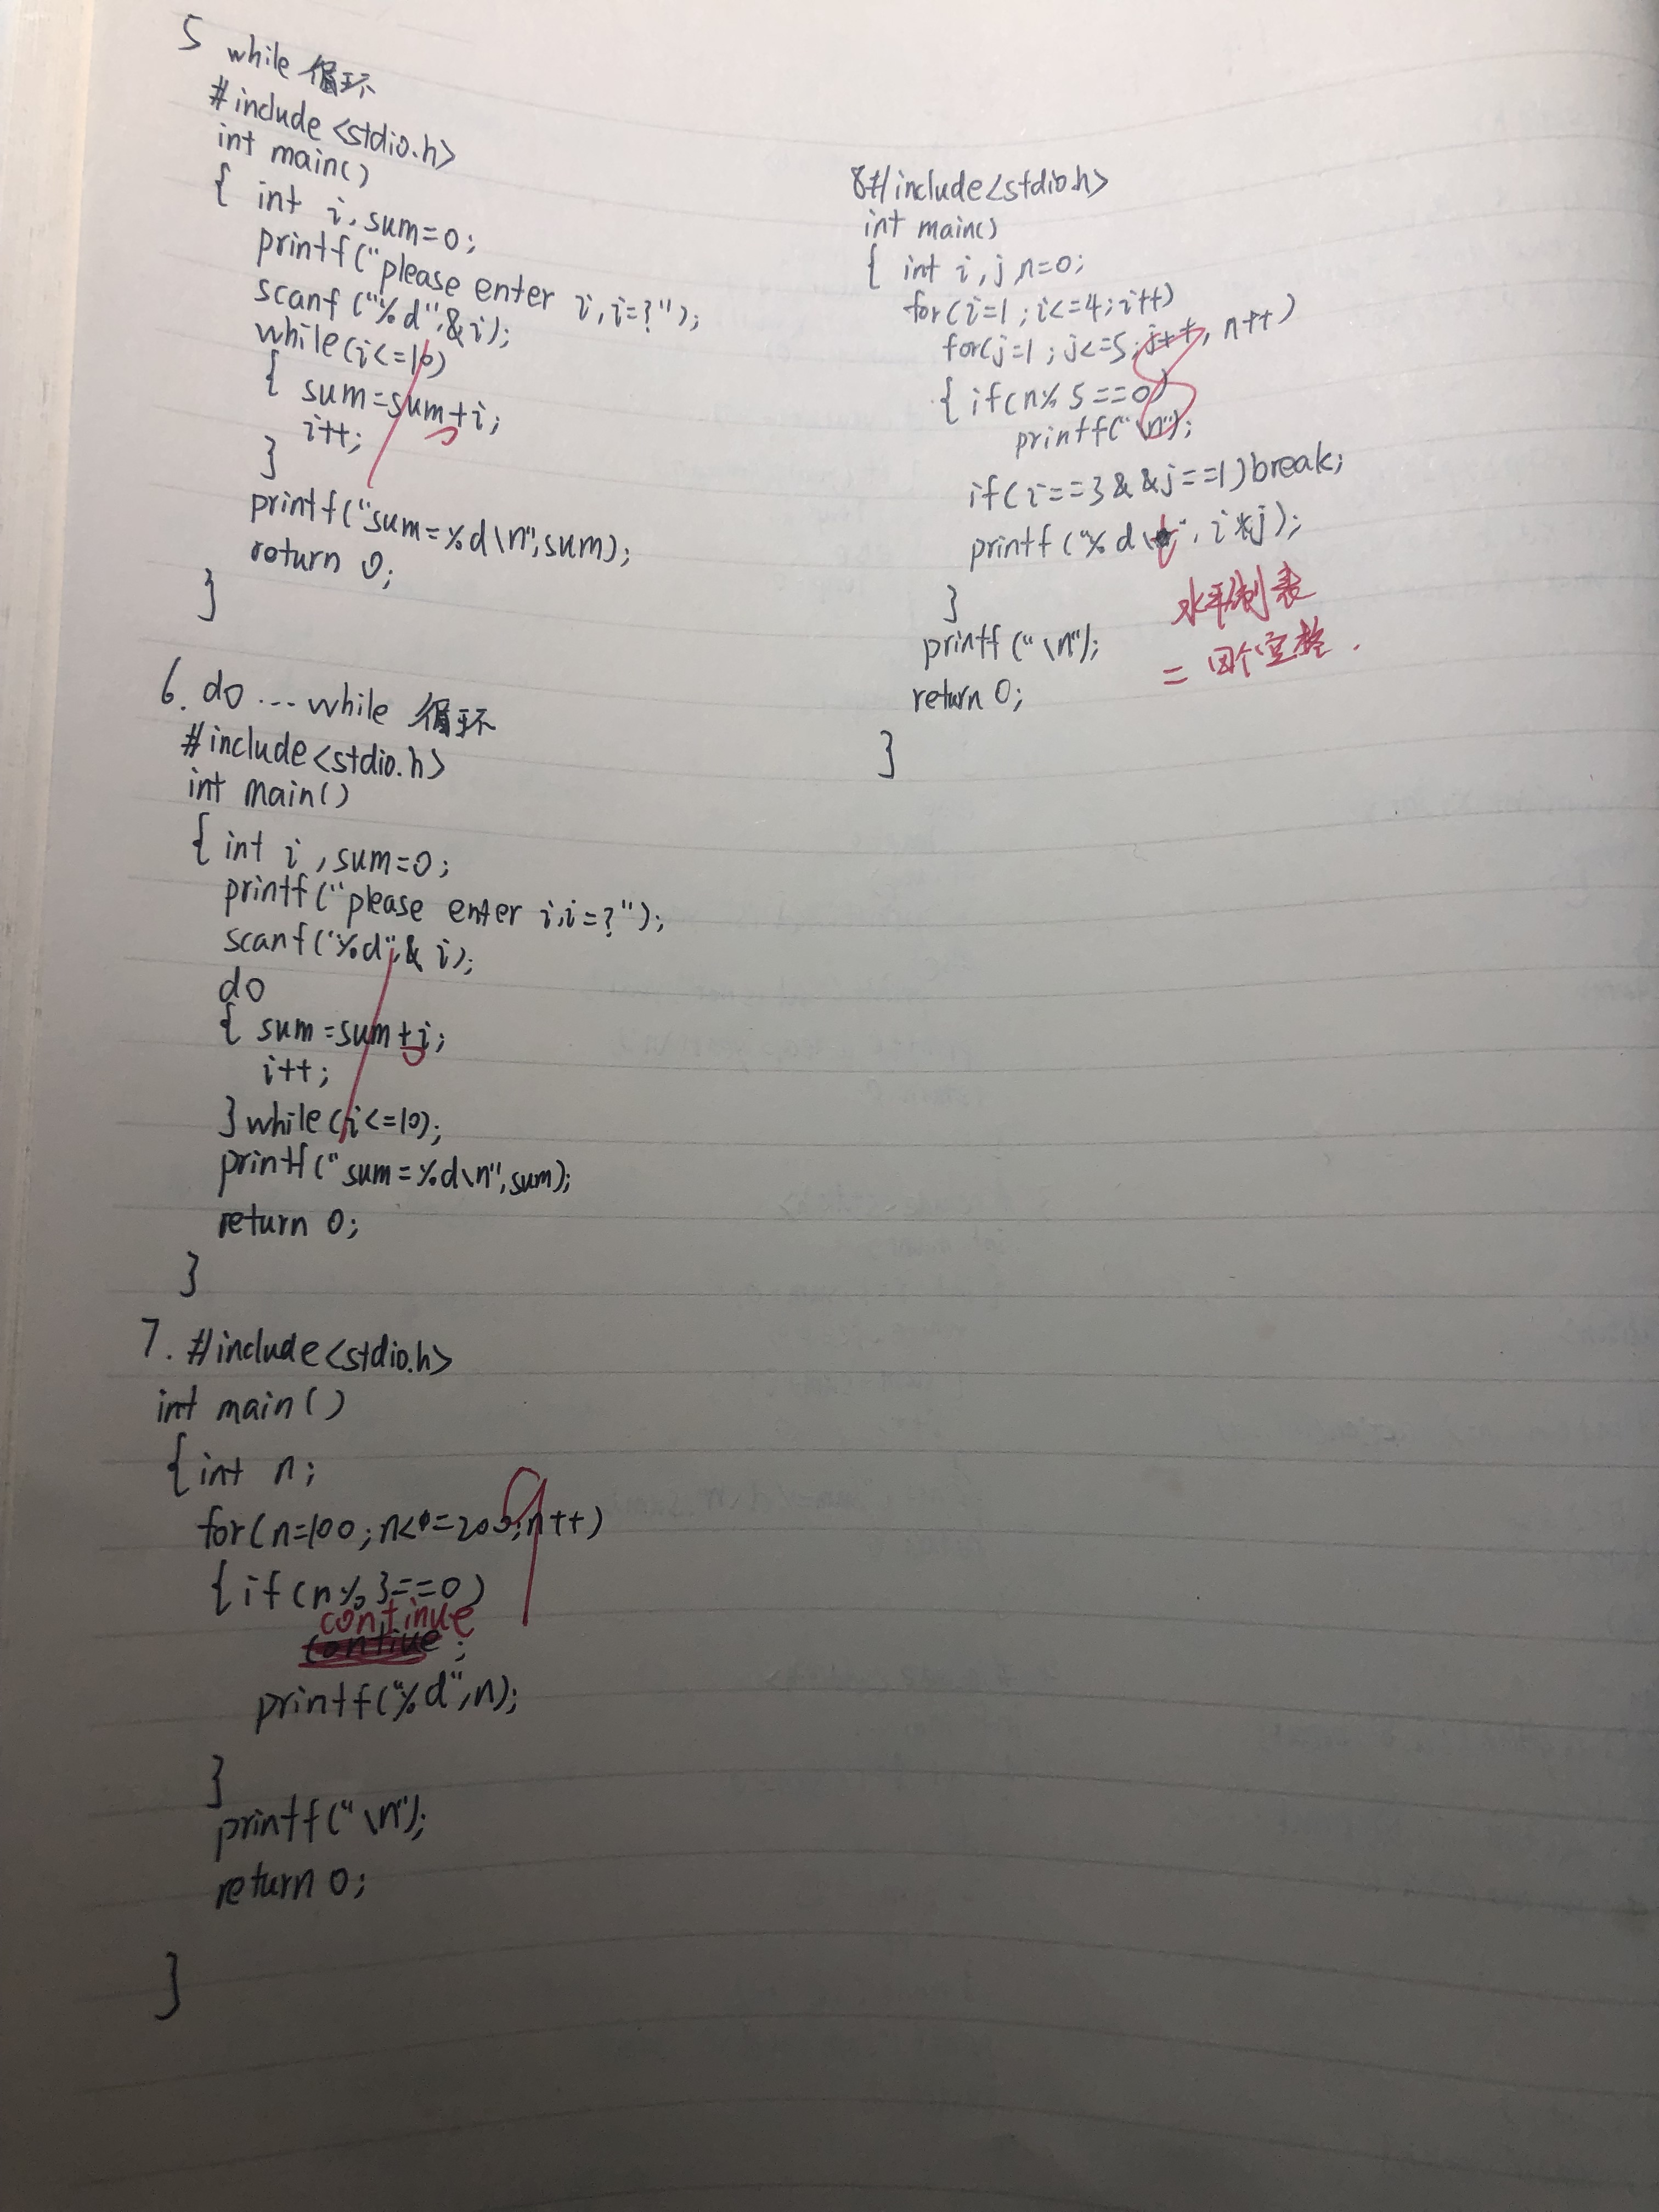 5 while 循环
#include <stdio.h>
int main()
{ int i, sum=0;
printf("please enter i, i=?");
scanf("%d",&i);
while(i<=10)
{ sum=sum+i;
i++;
}
printf("sum=%d\n",sum);
return 0;
}
6. do ... while 循环
#include<stdio.h>
int main()
{ int i, sum=0;
printf("please enter i,i=?");
scanf("%d",& i);
do
{ sum=sum+i;
i++;
}while(i<=10);
printf("sum=%d\n",sum);
return 0;
}
7. #include<stdio.h>
int main()
{int n;
for(n=100;n<=200;n++)
{if(n%3==0)
continue
contiue;
printf("%d",n);
}
printf("\n");
return 0;
}
8#include<stdio.h>
int main()
{ int i,j,n=0;
for(i=1;i<=4;i++)
for(j=1;j<=5;j++,n++)
{if(n%5==0)
printf("\n");
if(i==3&&j==1)break;
printf("%d\t",i*j);
}
水平制表
=四个空格.
printf("\n");
return 0;
}